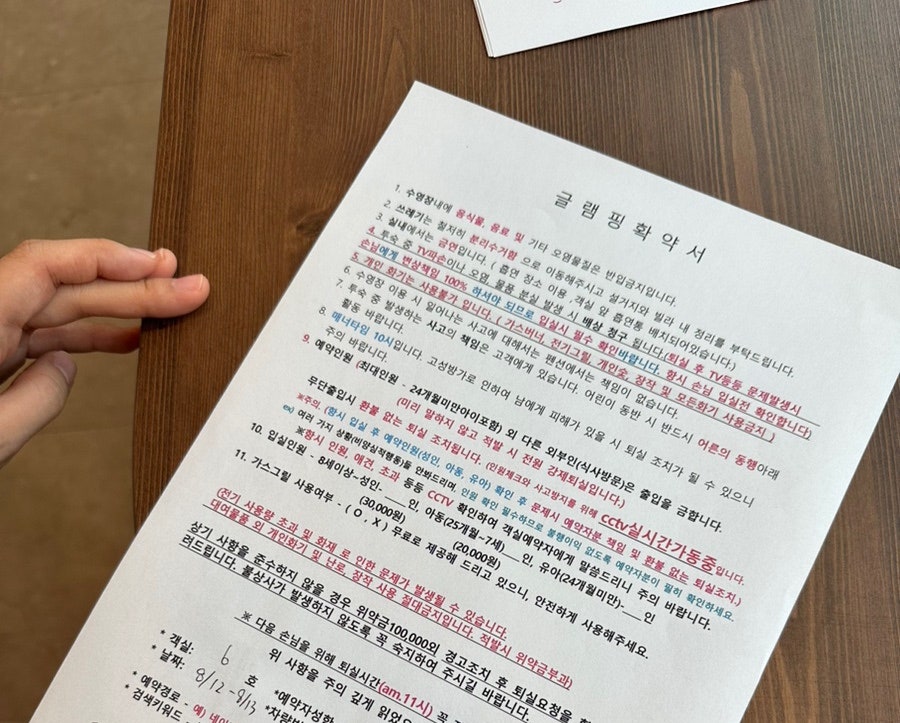 글램핑확약서
1. 수영장내에 음식물, 음료 및 기타 오염물질은 반입금지입니다.
2. 쓰레기는 철저히 분리수거함 으로 이동해주시고 설거지와 빌라 내 정리를 부탁드립니다.
3. 실내에서는 금연입니다. ( 흡연 장소 이용 , 객실 앞 흡연통 배치되어있습니다.)
4. 투숙 중 TV파손이나 오염, 물품 분실 발생 시 배상 청구 됩니다.(퇴실 후 TV등등 문제발생시
손님에게 변상책임 100% 하셔야 되므로 입실시 필수 확인바랍니다. 항시 손님 입실전 확인합니다)
5. 개인 화기는 사용불가 입니다. ( 가스버너, 전기그릴, 개인숯, 장작 및 모든화기 사용금지 )
6. 수영장 이용 시 일어나는 사고에 대해서는 팬션에서는 책임이 없습니다.
7. 투숙 중 발생하는 사고의 책임은 고객에게 있습니다. 어린이 동반 시 반드시 어른의 동행아래
활동 바랍니다.
8. 매너타임 10시입니다. 고성방가로 인하여 남에게 피해가 있을 시 퇴실 조치가 될 수 있으니
주의 바랍니다.
9. 예약인원 (최대인원 - 24개월미만아이포함) 외 다른 외부인(식사방문)은 출입을 금합니다.
(미리 말하지 않고 적발 시 전원 강제퇴실입니다.)
무단출입시 환불 없는 퇴실 조치됩니다. (인원체크와 사고방지를 위해 CCTV실시간가동중입니다.
※주의. (항시 입실 후 예약인원(성인, 아동, 유아) 확인 후 문제시 예약자분 책임 및 환불 없는 퇴실조치.)
ex) 여러 가지 상황(비양심적행동)을 안봐드리며, 인원 확인 필수하므로 불행이익 없도록 예약자분이 필히 확인하세요.
※항시 인원, 애견, 초과 등등 CCTV 확인하여 객실예약자에게 말씀드리니 주의 바랍니다.
10. 입실인원 - 8세이상~성인- ___ 인, 아동(25개월~7세)___ 인, 유아(24개월미만)-___인
(30,000원) (20,000원)
11. 가스그릴 사용여부 - ( O , X ) 무료로 제공해 드리고 있으니, 안전하게 사용해주세요.
(전기 사용량 초과 및 화재 로 인한 문제가 발생될 수 있습니다.
대여물품 외 개인화기 및 난로, 장작 사용 절대금지입니다. 적발시 위약금부과)
상기 사항을 준수하지 않을 경우 위약금100,000외 경고조치 후 퇴실요청을
려드립니다. 불상사가 발생하지 않도록 꼭 숙지하여 주시길 바랍니다.
※ 다음 손님을 위해 퇴실시간(am.11시) 꼭
위 사항을 주의 깊게 읽었으
* 객실: 6 호 *예약자성함
* 날짜: 8/12-9/13 *차량번
* 예약경로 - 예) 네이
* 검색키워드